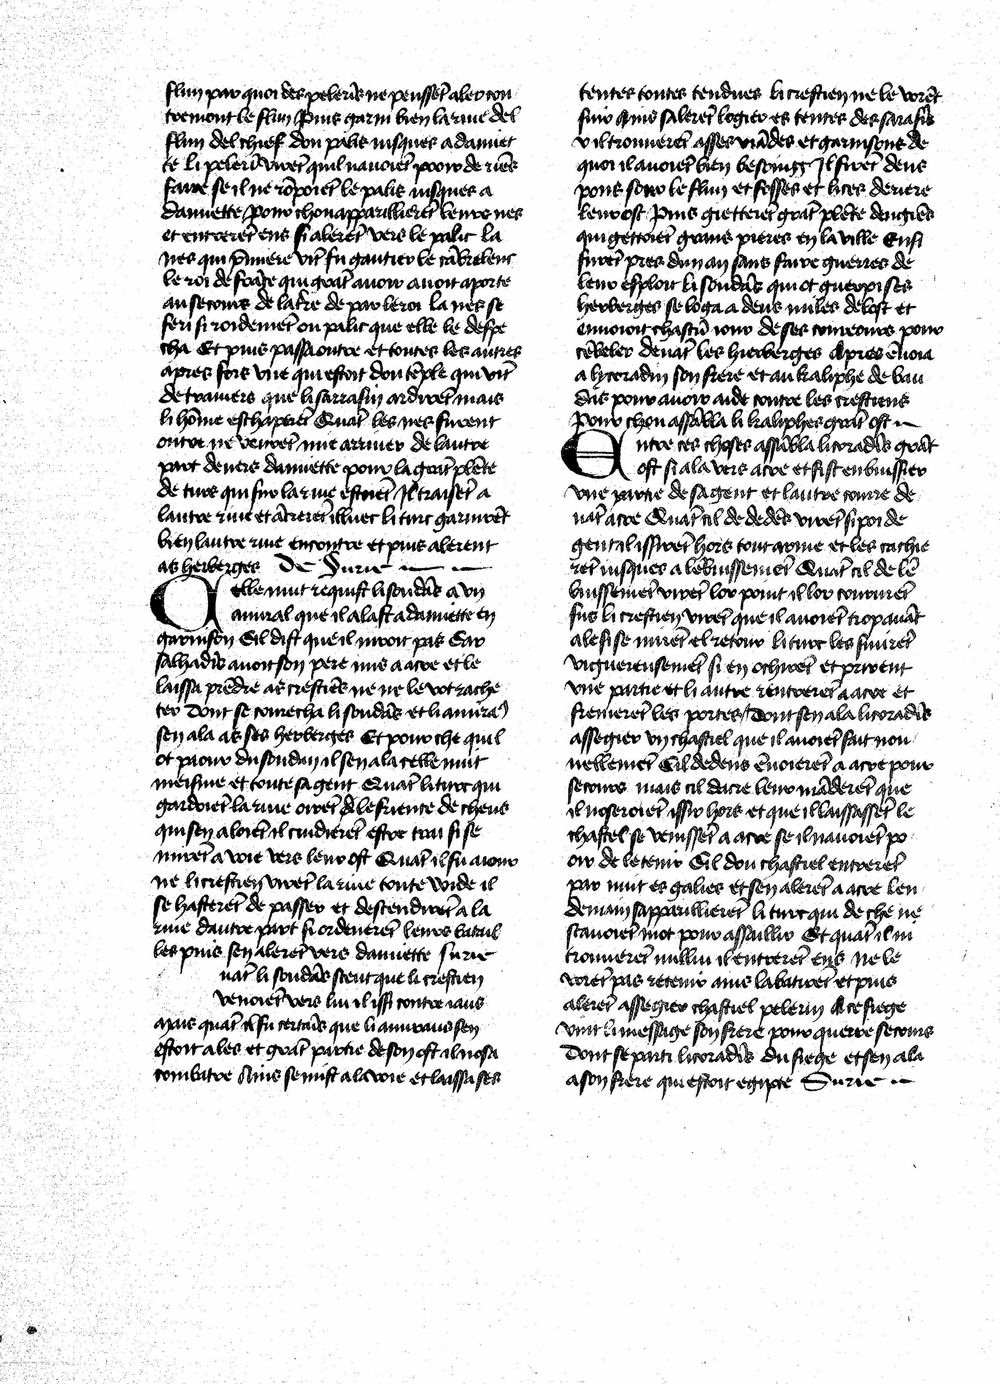 flun par quoi des pelerīs ne peussēt aler con
tremont le flun Puis garni bien la riue del
flun del chief don palis iusques a damiet
te Li pelerī virēt quil nauoiēt pooir de riēs
faire se il ne rōpoiēt le palis iusques a
damiette Pour chou apparillierēt leurs nes
et entrerēt ens si alerēt vers le palic La
nes qui prīmiere vīt fu gautier le cābrelenc
le roi de frāce qui grāt auoir auoit aporte
au secours de la tre de par le roi La nes se
feri si roidemēt ou palic que elle le despe
cha Et puis passa outre et toutes les autres
apres fors vne qui estoit dou tēple qui vīt
de trauiers que li sarrasin ardirēt mais
li hōme eschaperēt Quāt les nes furent
outre ne veurēt mie arriuer de lautre
part deuers damiette pour la grāt plēte
de turs qui sur la riue estoiēt Il traisēt a
lautre riue et ācrerēt illuec li turc garnirēt
bien lautre riue encontre et puis alerent
as herberges De Surie
Celle nuit requist li soudās a vn
amiral que il alast a damiette en
garnison Cil dist que il niroit pas Car
salhadīs auoit son pere mis a acre et le
laissa prēdre as crestiēs ne ne le vot rache
ter Dont se courecha li soudās et li amirās
sen ala as ses herberges Et pour che quil
ot paour du soudan il sen ala celle nuit
meisme et toute sa gent Quāt li turc qui
gardoiēt la riue oirēt le friente de cheus
qui sen aloiēt il cuidierēt estre trai si se
mirēt a voie vers leur ost Quāt il fu aiour
ne li crestien virēt la riue toute wide il
se hasterēt de passer et descendirēt a la
riue dautre part si ordenerēt leurs batail
les puis sen alerēt vers damiette Surie
uāt li soudās sceut que li crestien
venoiēt vers lui il issi contre iaus
Mais quāt il fu certaīs que li amiraus sen
estoit ales et grāt partie de son ost al nosa
combatre Ains se mist a la voie et laissa ses
tentes toutes tendues Li crestien ne le vorēt
suir Ains salerēt logier es tentes des sarasīs
v il trouuerēt asses viādes et garnisons de
quoi il auoiēt bien besoing Il firēt deus
pons sour le flun et fosses et lices deriere
leur ost Puis gietterēt grāt plēte dengiēs
qui gettoiēt grans pieres en la ville Ensi
furēt pres dun an sans faire guerres de
leur esploit Li soudās qui ot guerpi ses
herberges se loga a deus miles de lost et
enuoioit chascū iour de ses coureours pour
cēbeler deuāt les herberges Apres ēuoia
a lycoradin son frere et au kaliphe de bau
das pour auoir aide contre les crestiens
Pour chou assābla li kaliphes grāt ost
Entre ces choses assābla li coradīs grāt
ost si ala vers acre et fist enbuissier
vne partie de sa gent et lautre courre de
uāt acre Quāt cil de dedēs virēt si poi de
gent al issirēt hors tout arme et les cachie
rēt iusques a lēbuissemēt Quāt cil de lē
buissemēt virēt lor point il lor coururēt
sus li crestien virēt que il auoiēt trop auāt
ale si se mirēt el retour li turc les suirēt
viguereusemēt si en ochirēt et prirent
vne partie et li autre rentrerēt a acre et
fremerēt les portes Dont sen ala li coradīs
assegier vn chastiel que il auoiēt fait nou
uellemēt Cil dedens ēuoierēt a acre pour
secours mais cil dacre leur māderēt que
il noseroiēt issir hors et que il laissassēt le
chastel se venissēt a acre se il nauoiēt po
oir de le tenir Cil dou chastiel entrerēt
par nuit es galies et sen alerēt a acre Len
demain sapparillierēt li turc qui de che ne
scauoiēt mot pour assallir Et quāt il ni
trouuerēt nullui il entrerēt ens ne le
vorēt pas retenir ains labatirēt et puis
alerēt assegier chastiel pelerin A ce siege
vint li message son frere pour querre secours
Dont se parti li coradīs du siege et sen ala
a son frere qui estoit egipte Surie